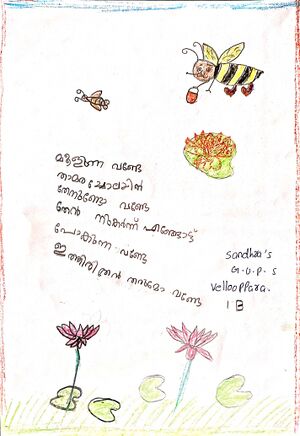 മൂളുന്ന വണ്ടേ
താമര ചോലയിൽ
തേനുണ്ടോ വണ്ടേ
തേൻ നുകർന്ന് എങ്ങോട്ട്
പോകുന്നു വണ്ടേ
ഇത്തിരിതേൻ തരുമോ വണ്ടേ
Sandhra's
G.U.P.S
Vellooppara.
I B